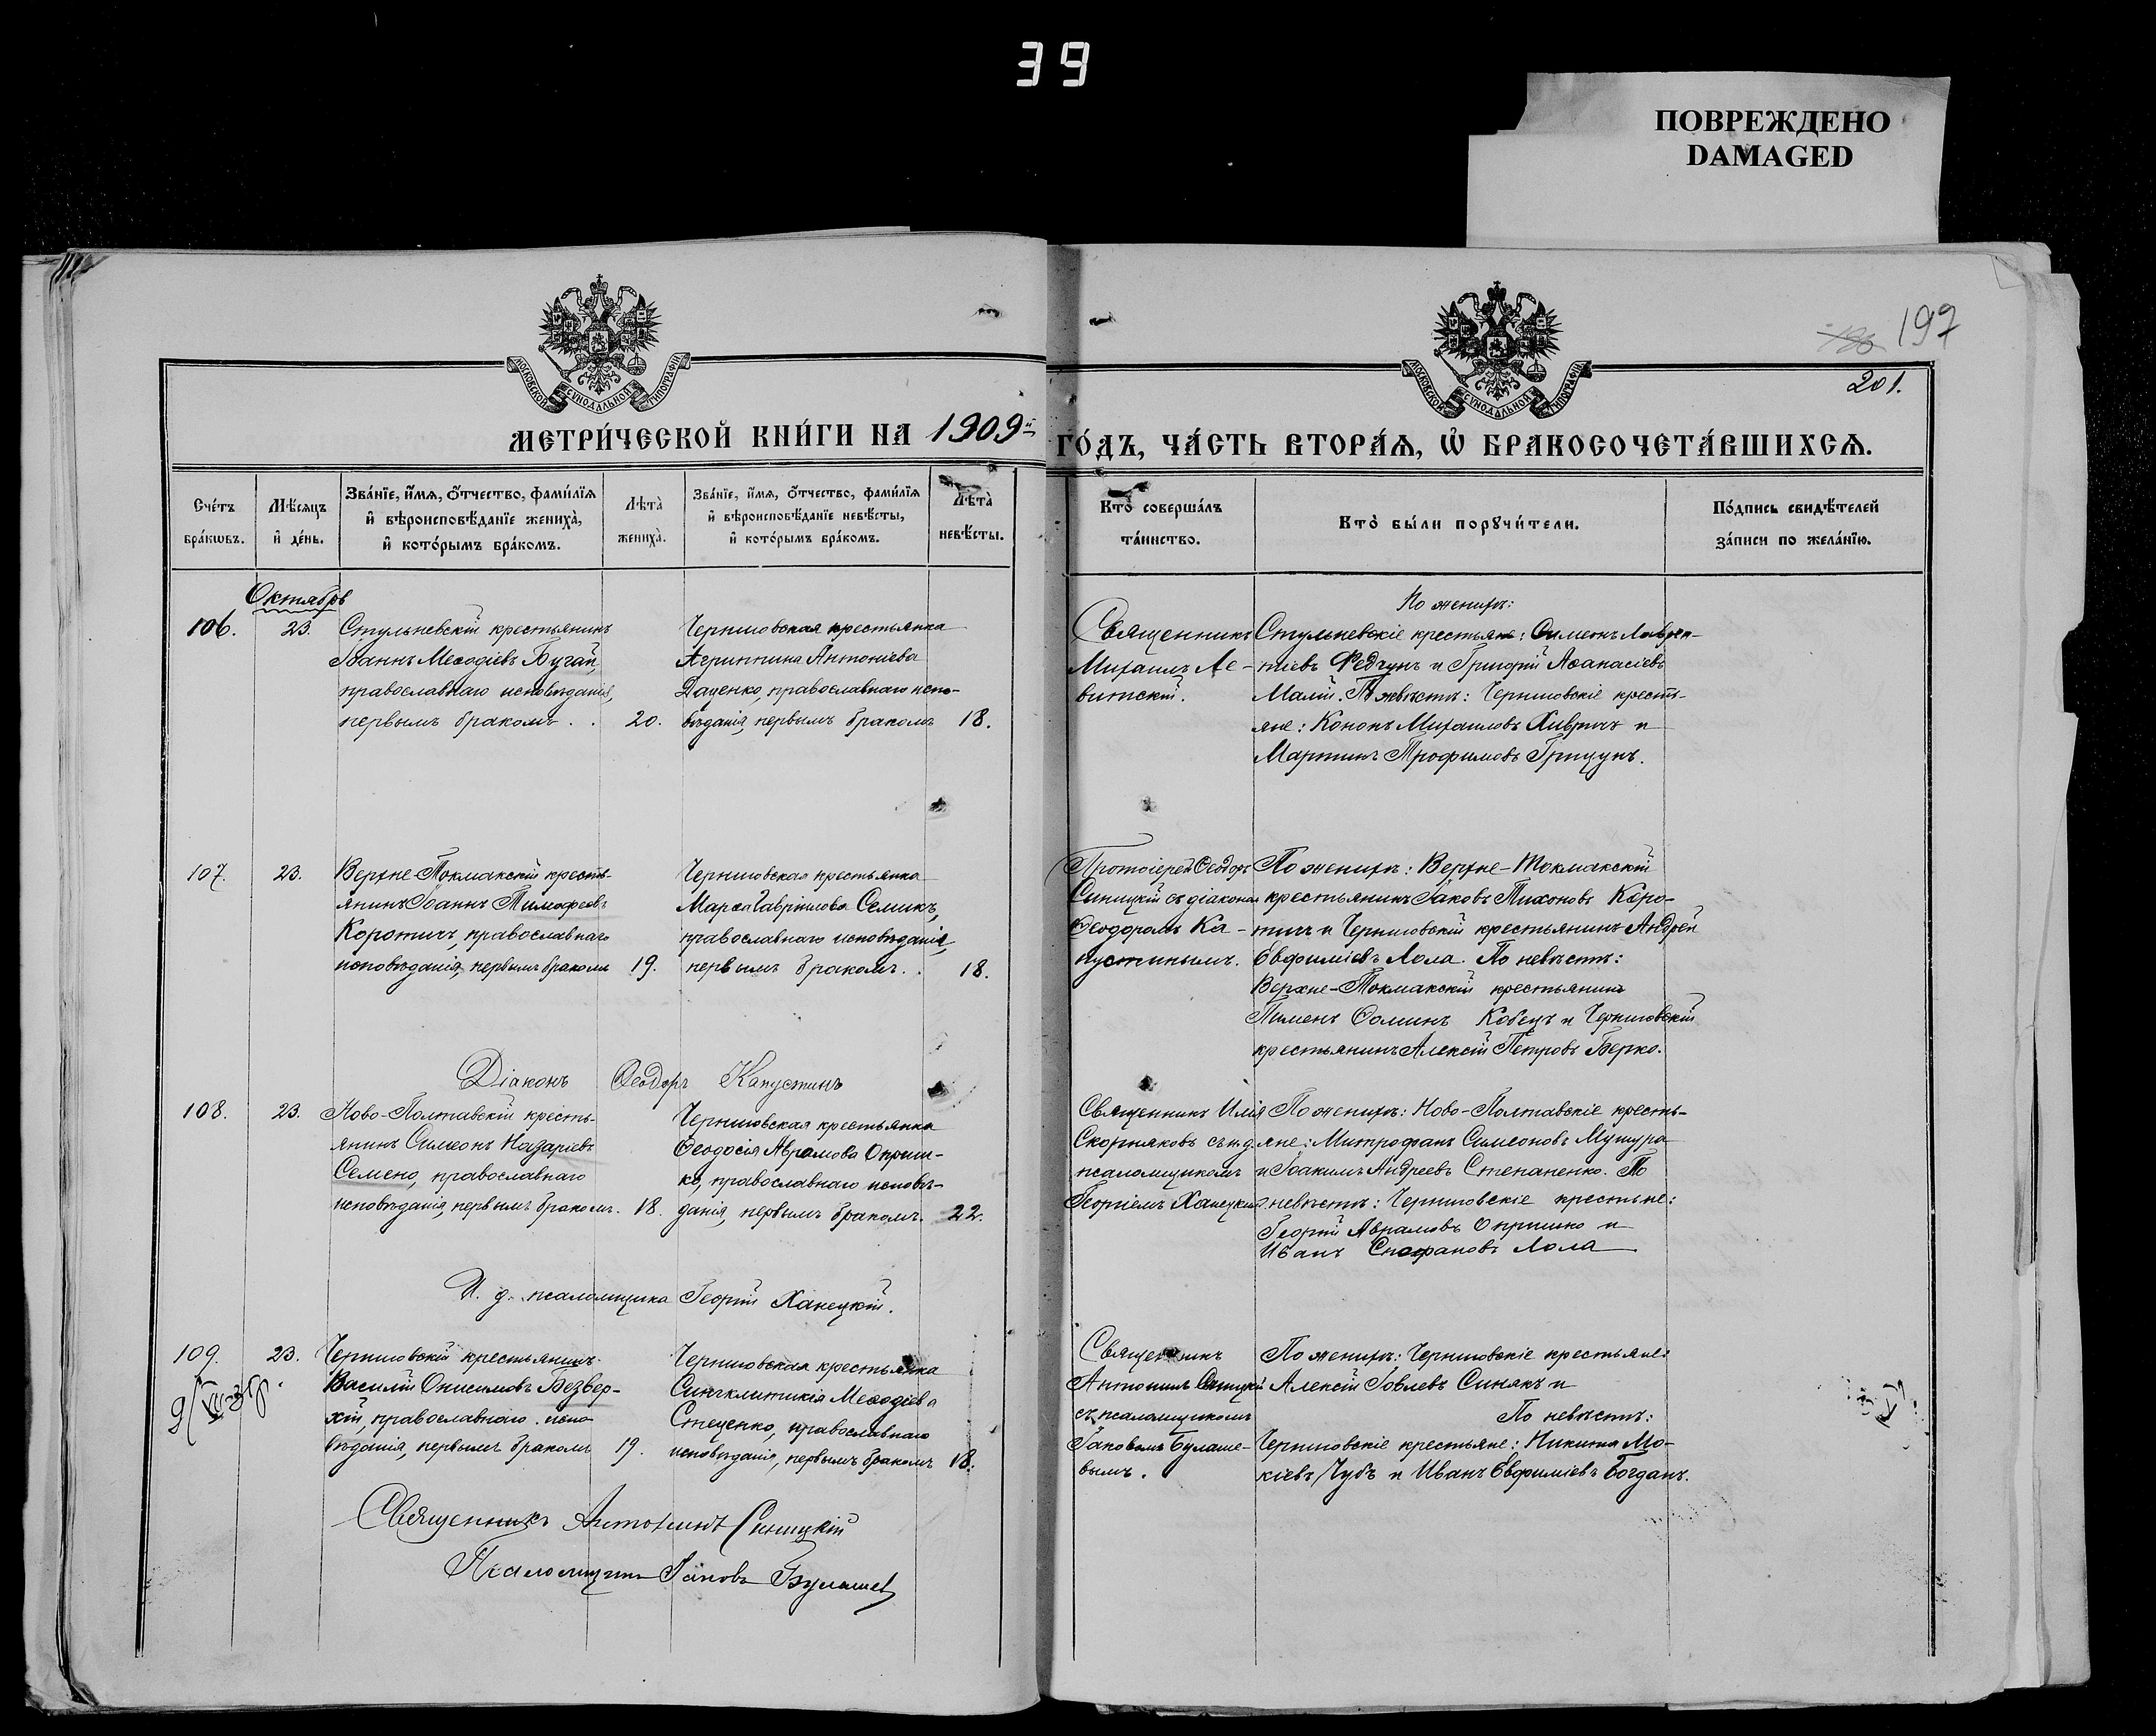 39
ПОВРЕЖДЕНО
DAMAGED
197
201.
МОСКОВСКОЙ СУНОДАЛЬНОЙ ТИПОГРАФІИ
МОСКОВСКОЙ СУНОДАЛЬНОЙ ТИПОГРАФІИ
МЕТРИ́ЧЕСКОЙ КНИ́ГИ НА 1909й ГО́ДЪ, ЧА́СТЬ ВТОРА́Ѧ, Ѡ҆ БРАКОСОЧЕТА́ВШИХСѦ.
Сче́тъ бра́кѡвъ.
Мѣ́сяцъ и҆ де́нь.
Зва́нїе, и҆́мѧ, о҆́тчество, фами́лїѧ и҆ вѣроисповѣ́данїе жениха̀, и҆ кото́рымъ бра́комъ.
Лѣта̀ жениха̀.
Зва́нїе, и҆́мѧ, о҆́тчество, фами́лїѧ и҆ вѣроисповѣ́данїе невѣ́сты, и҆ кото́рымъ бра́комъ.
Лѣта̀ невѣ́сты.
Кто̀ соверша́лъ та́инство.
Кто̀ бы́ли порꙋчи́тели.
По́дпись свидѣ́телей за́писи по жела́нїю.
Октябрь
106.
23.
Стульневскій крестьянинъ
Іоаннъ Меѳодіевъ Бугай,
православнаго исповѣданія,
первымъ бракомъ. .
20.
Черниговская крестьянка
Агриппина Антоніева
Даценко, православнаго испо-
вѣданія, первымъ бракомъ
18.
Священникъ
Михаилъ Ле-
витскій.
По женихѣ:
Стульневскіе крестьяне: Симеонъ Лаврен-
тіевъ Федчунъ и Григорій Аѳанасіевъ
Малій. По невѣстѣ: Черниговскіе кресть-
яне: Кононъ Михаиловъ Хивричъ и
Мартинъ Трофимовъ Грицунъ.
107.
23.
Верхне-Токмакскій кресть-
янинъ Іоаннъ Тимоѳеевъ
Коротичъ, православнаго
исповѣданія, первымъ бракомъ
19.
Черниговская крестьянка
Марѳа Гавріилова Семикъ,
православнаго исповѣданія,
первымъ бракомъ. .
18.
Протоіерей Ѳеодоръ
Синицкій съ діакономъ
Ѳеодоромъ Ка-
пустинымъ.
По женихѣ: Верхне-Токмакскій
крестьянинъ Іаковъ Тихоновъ Коро-
тичъ и Черниговскій крестьянинъ Андрей
Евфиміевъ Лола. По невѣстѣ:
Верхне-Токмакскій крестьянинъ
Пименъ Ѳоминъ Кобецъ и Черниговскій
крестьянинъ Алексій Петровъ Верко.
Діаконъ Ѳеодоръ Капустинъ
108.
23.
Ново-Полтавскій кресть-
янинъ Симеонъ Назаріевъ
Семено, православнаго
исповѣданія, первымъ бракомъ.
18.
Черниговская крестьянка
Ѳеодосія Аврамова Оприш-
ко, православнаго исповѣ-
данія, первымъ бракомъ.
22.
Священникъ Илія
Скорняковъ съ и.д.
псаломщикомъ
Георгіемъ Ханецкимъ
По женихѣ: Ново-Полтавскіе кресть-
яне: Митрофанъ Симеоновъ Мушура
и Іоакимъ Андреевъ Степаненко. По
невѣстѣ: Черниговскіе крестьяне:
Георгій Аврамовъ Опришко и
Иванъ Стефановъ Лола
И. д. псаломщика Георгій Ханецкій.
109.
23.
Черниговскій крестьянинъ
Василій Онисимовъ Безвер-
хій, православнаго испо-
вѣданія, первымъ бракомъ
19.
Черниговская крестьянка
Синклитикія Меѳодіева
Стеценко, православнаго
исповѣданія, первымъ бракомъ
18.
Священникъ
Антонинъ Синицкій
съ псаломщикомъ
Іаковомъ Булаше-
вымъ.
По женихѣ: Черниговскіе крестьяне:
Алексій Іовлевъ Синякъ и
По невѣстѣ:
Черниговскіе крестьяне: Никита Мо-
кіевъ Чубъ и Иванъ Евфиміевъ Богданъ.
Священникъ Антонинъ Синицкій
Псаломщикъ Іаковъ Булашевъ